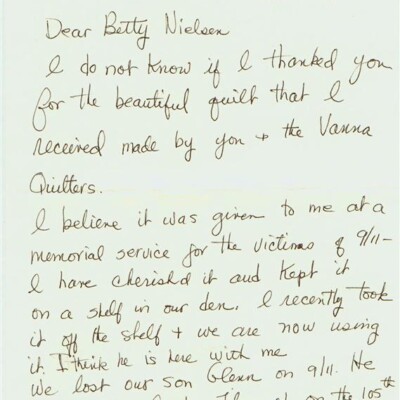 Dear Betty Nielsen
I do not know if I thanked you
for the beautiful quilt that I
received made by you + the Vanna
Quilters.
I believe it was given to me at a
memorial service for the victims of 9/11-
I have cherishd it and kept it
on a shelf in our den. I recently took
it off the shelf + we are now using
it. I think he is here with me
We lost our son Glenn on 9/11. He
on the 105th